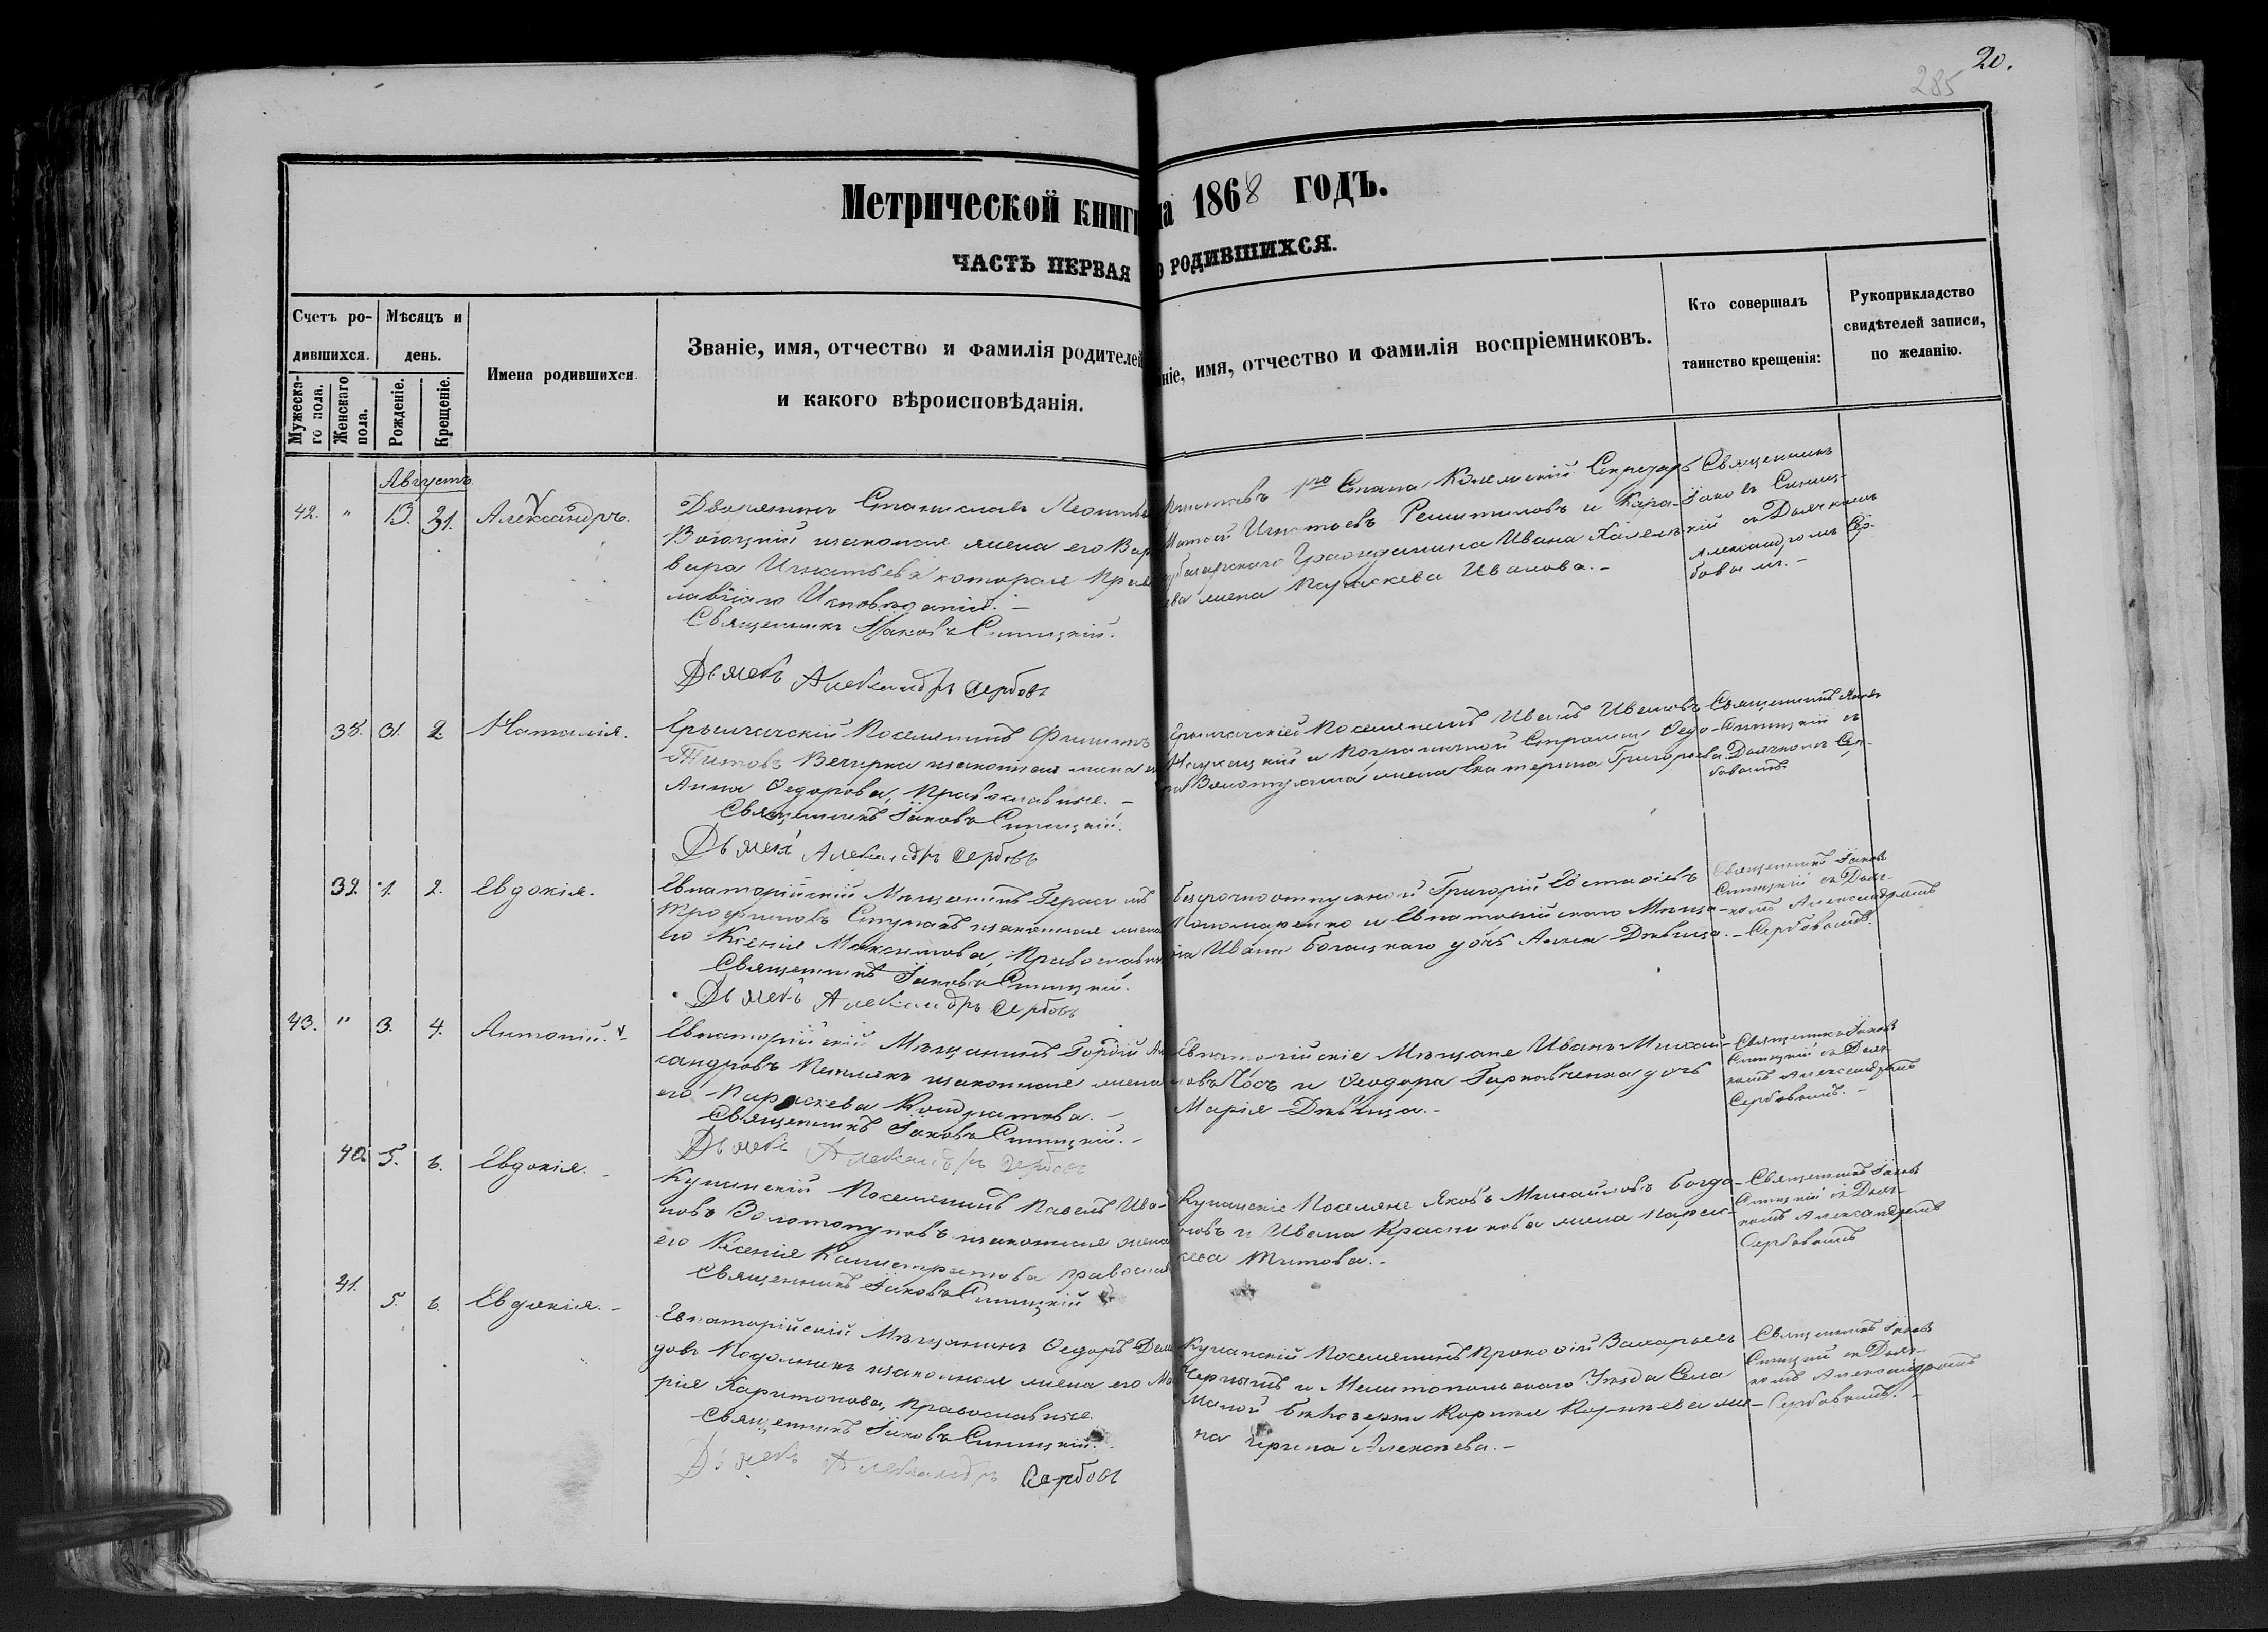 20.
285
Метрической книги на 1868 годъ.
ЧАСТЬ ПЕРВАЯ О РОДИВШИХСЯ.
Счетъ ро-
дившихся.
Мужеска-
го пола.
Женскаго
пола.
Мѣсяцъ и
день.
Рожденіе.
Крещеніе.
Имена родившихся.
Званіе, имя, отчество и фамилія родителей
и какого вѣроисповѣданія.
ніе, имя, отчество и фамилія воспріемниковъ.
Кто совершалъ
таинство крещенія:
Рукоприкладство
свидѣтелей записи,
по желанію.
Августъ
42. " 13. 31. Александръ.
Дворянинъ Станиславъ
законная жена его Вар
вара Игнатьева которая Прав
лавнаго Исповѣданія. —
Священникъ Іаковъ Синицкій.
Дьячекъ Александръ Сербовъ
1го Стана Секретарь
Игнатьевъ и Кара-
субазарскаго Гражданина Ивана
ева жена Параскева Иванова. —
Священникъ
Іаковъ Синиц-
кій съ Дьячкомъ
Александромъ Сер-
бовымъ. —
38. 31. 2. Наталія.
Поселянинъ Филиппъ
Титовъ Вечирка законная жена
Анна Ѳедорова, Православные. —
Священникъ Іаковъ Синицкій.
Дьячекъ Александръ Сербовъ
Поселянинъ Иванъ Ивановъ
и Ѳедо-
жена Екатерина Григорьева.
Священникъ Іаковъ
Синицкій съ
Дьячкомъ Сер-
бовымъ.
39. 1. 2. Евдокія.
Евпаторійскій Мѣщанинъ Герасимъ
Трофимовъ Ступакъ законная жена
его Ксенія Максимова, Православн
Священникъ Іаковъ Синицкій.
Дьячекъ Александръ Сербовъ
безсрочноотпускной Григорій Евстафіевъ
Пономаренко и Евпаторійскаго Мѣща-
нина Ивана Богацкаго дочь Анна Дѣвица. —
Священникъ Іаковъ
Синицкій съ Дьяч-
комъ Александромъ
Сербовымъ.
43. " 3. 4. Антоній.
Евпаторійскій Мѣщанинъ
сандровъ законная жена
его Параскева Кондратова. —
Священникъ Іаковъ Синицкій. —
Дьячекъ Александръ Сербовъ
Евпаторійскіе Мѣщане Иванъ Михай-
ловъ и Ѳеодора дочь
Марія Дѣвица. —
Священникъ Іаковъ
Синицкій съ Дьяч-
комъ Александромъ
Сербовымъ. —
40. 5. 6. Евдокія.
Поселянинъ Павелъ Ива-
новъ Золотопуповъ законная жена
его Ксенія Калистратова правосла
Священникъ Іаковъ Синицкій
Поселяне Яковъ Михайловъ Богда-
новъ и Ивана Красникова жена Парас-
кева Титова. —
Священникъ Іаковъ
Синицкій съ Дьяч-
комъ Александромъ
Сербовымъ
41. 5. 6. Евдокія. —
Евпаторійскій Мѣщанинъ Ѳедоръ
законная жена его Ма
рія Харитонова, православные.
Священникъ Іаковъ Синицкій.
Дьячекъ Александръ Сербовъ
Поселянинъ Прокофій Захарьевъ
Черныш и Мелитопольскаго Уѣзда Села
Малой Бѣлозерки же-
на Ирина Алексѣева. —
Священникъ Іаковъ
Синицкій съ Дьяч-
комъ Александромъ
Сербовымъ. —